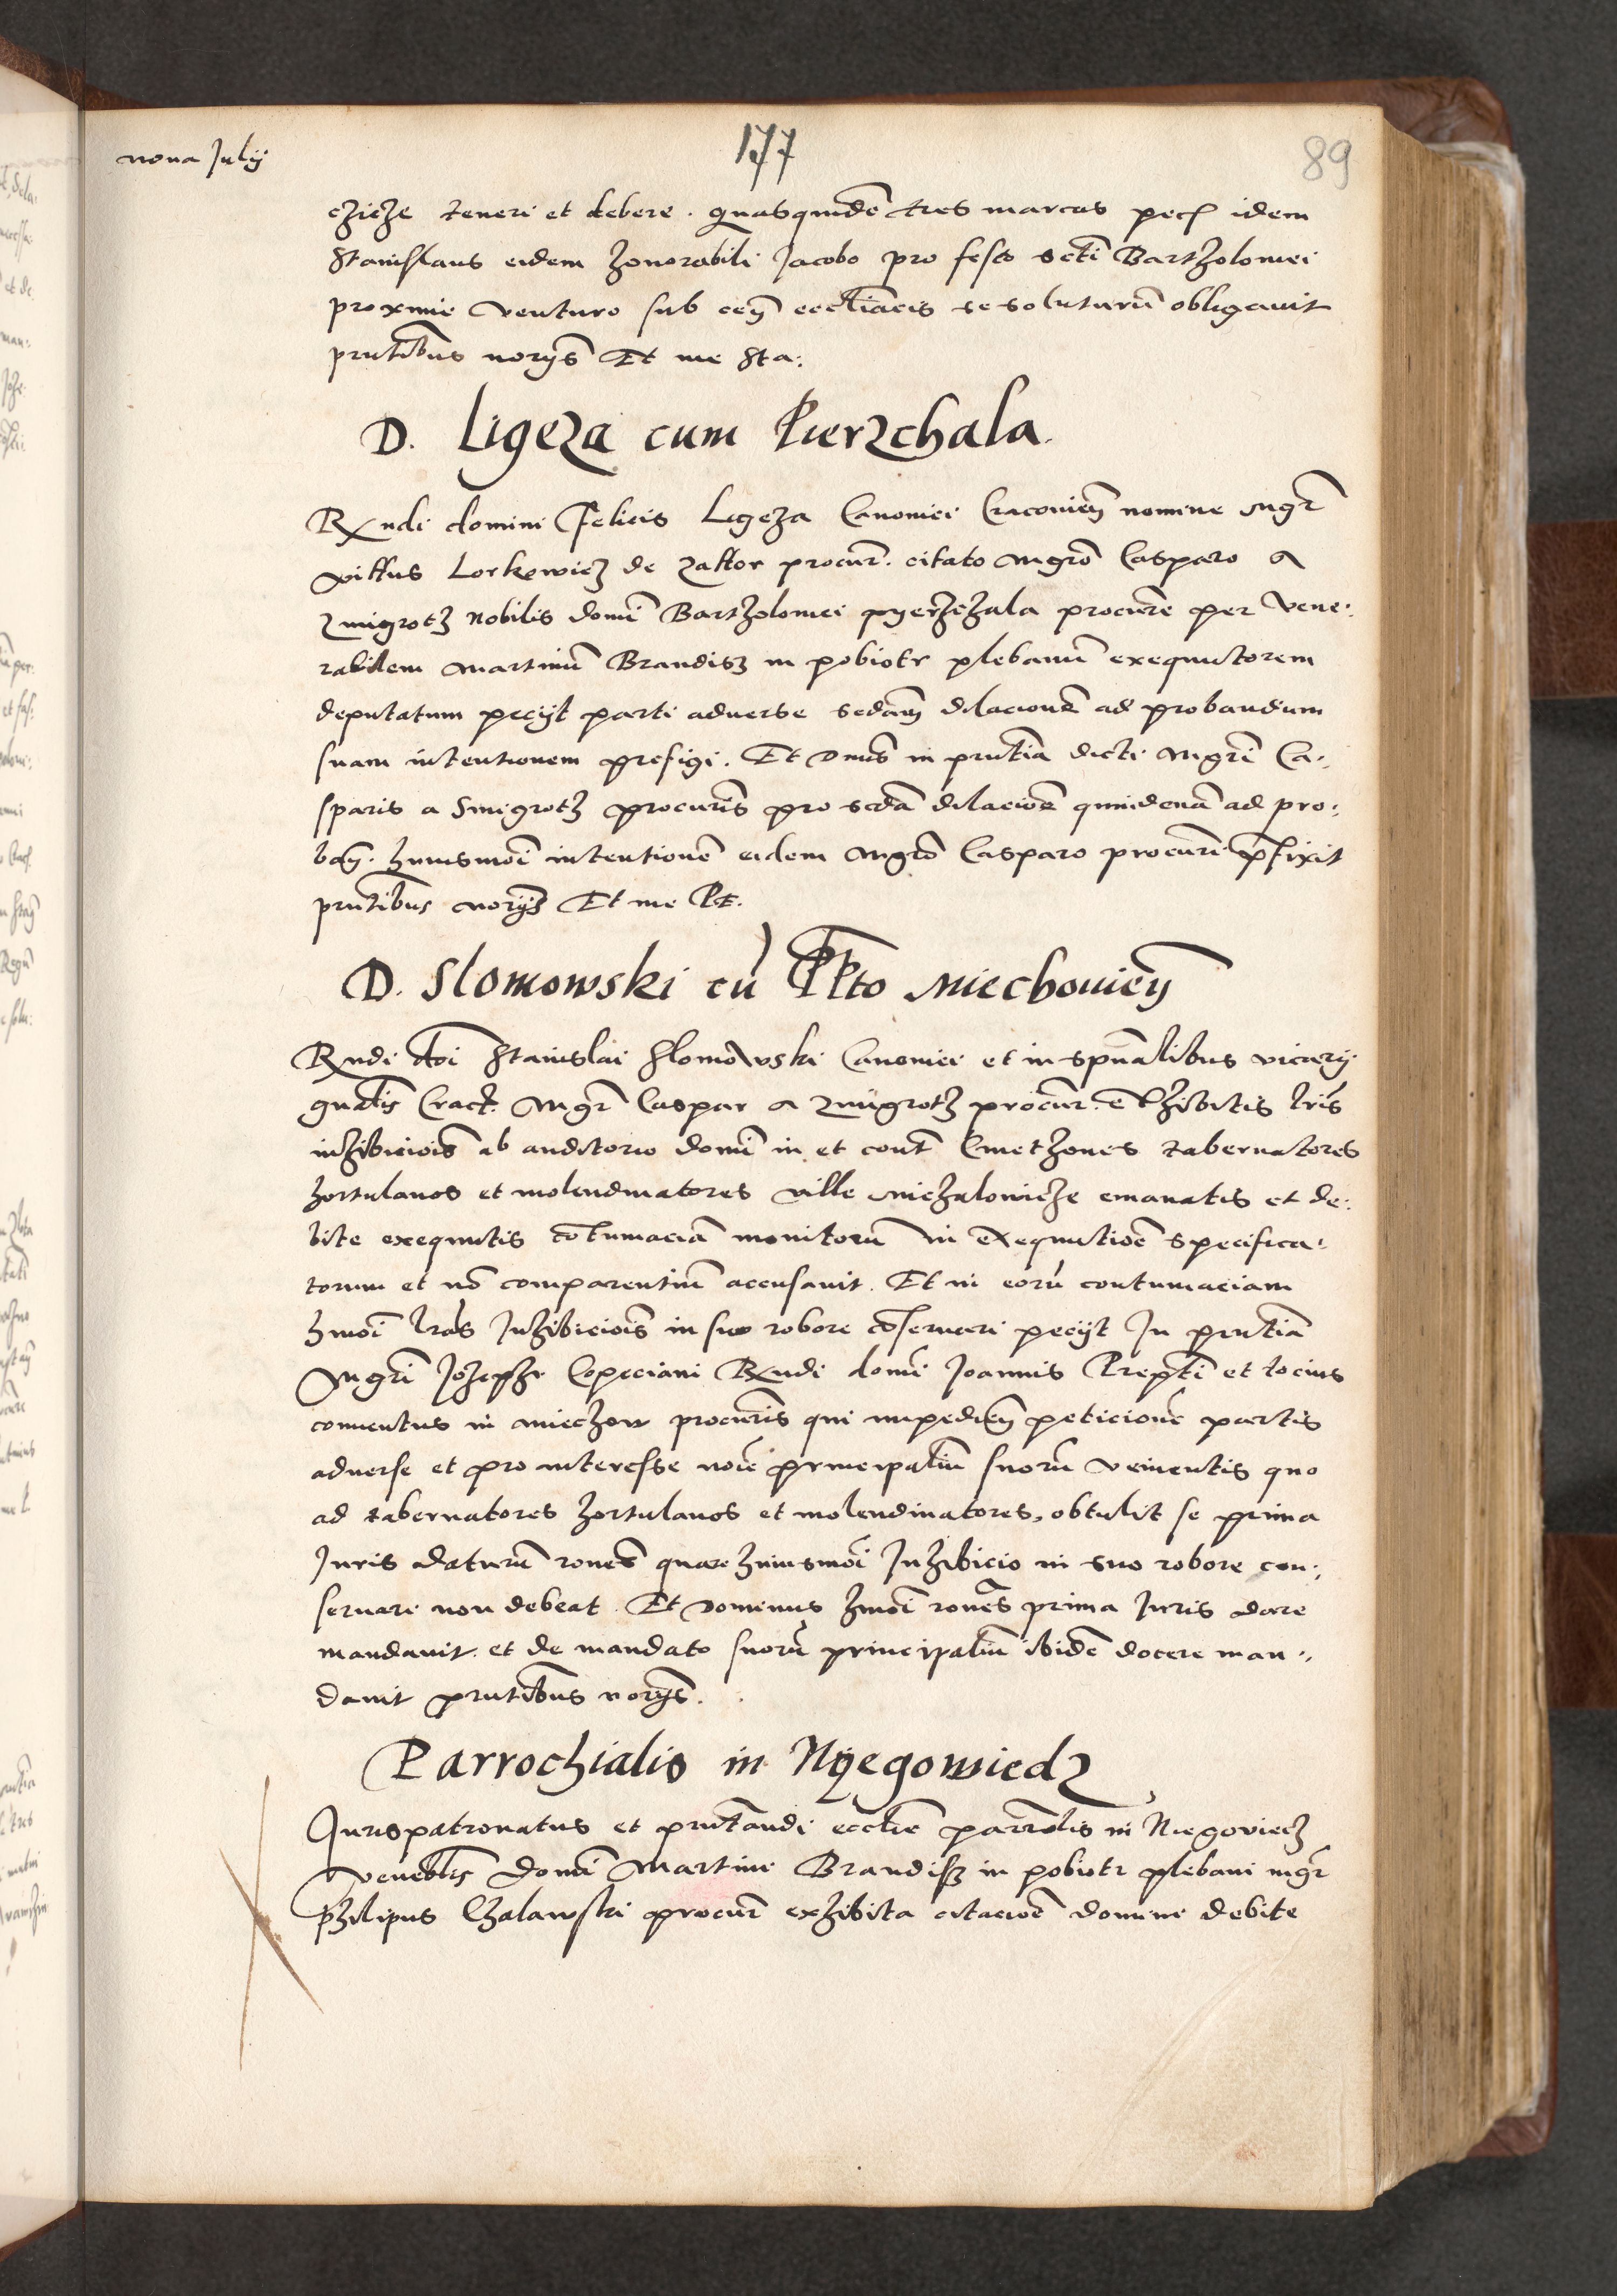 nona Julij
177
89
czicze teneri et debere. quasquidē tres marcas pecꝭ idem
Stanislaus eidem honorabili Jacobo pro festo scti Bartholomei
proxime venturo sub ceñ eccliacis se soluturū obligavit
pñtibus norijs Et me Sta:
D. Ligeza cum Pierzchala.
Rndi domini Felicis Ligeza Canonici Cracovieñ nomine Mgr
Vittus Lorkowicz de Zattor procur. citato Mgrō Casparo a
Zmigrotz Nobilis domi Bartholomei pyerzchala procure per Vene:
rabilem Martinū Brandisz in pobiotr plebanū exequutorem
deputatum pecijt parti adverse scdam dilacionē ad probandum
suam intentionem prefigi. Et Dnus in pñtia dicti Mgri Ca:
sparis a Smigrotz procuris pro scda dilacioē quindenā ad pro:
bañ. huiusmoi intentionē eidem Mgrō Casparo procuri p̄fixit
pñtibus norijs Et me PE.
D. Slomowski cū PPto Miechovieñ
Rndi doi Stanislai Slomowski Canonici et in spūalibus vicarij
gnalis Cracꝭ. Mgr Caspar a Zmigrotz procur. exhibitis lris
inhibiciois ab auditorio domi in et cont Cmethones tabernatores
hortulanos et molendinatores ville Miechalowicze emanatis et de:
bite exequutis cōtumaciā monitorū in exequutioē specifica:
torum et nō comparentiū accusavit. Et in eorū contumaciam
hmoi lras Inhibiciois in suo robore cōservari pecijt In pñtia
Mgri Josephi Copeciani Rndi domi Joannis Prepti et tocius
conventus in Miechow procuris qui impedieñ peticionē partis
adverse et pro interesse noīe principaliū suorū venientis quo
ad tabernatores hortulanos et molendinatores, obtulit se prima
Juris daturū roñes quare huiusmoi Inhibicio in suo robore con:
servari non debeat. Et Dominus hmoi roñes prima Juris dare
mandavit. et de mandato suorū principaliū ibidē docere man:
davit pñtibus norijs.
Parrochialis in Nyegowiedz
Jurispatronatus et pñtandi ecclie parrolis in Niegoviecz
venerblis Domi Martini Brandisz in pobiotr plebani mgr
philipus Chalawski procur exhibita citacioē domini debite